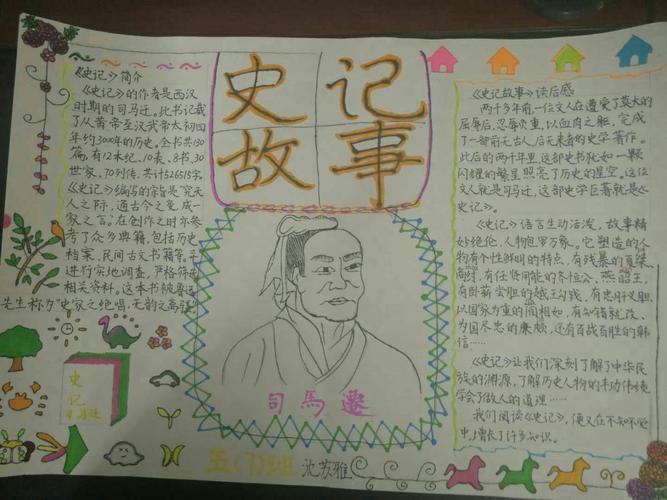 史记
故事
《史记》简介
《史记》的作者是西汉
时期的司马迁。此书记载
了从黄帝至汉武帝太初四
年约3000年的历史。全书共130
篇,有12本纪、10表、8书、30
世家、70列传,共计526515字。
《史记》编写的宗旨是"究天
人之际,通古今之变,成一
家之言。在创作之时亦参
考了众多典籍,包括历史
档案、民间古文书籍等。并
进行实地调查,严格筛选
相关资料。这本书被鲁迅
先生称为"史家之绝唱,无韵之离骚"
史
记
司马迁
司馬遷
五(7)班 沈苏雅
《史记故事》读后感
两千多年前,一位文人在遭受了莫大的
屈辱后,忍辱负重,以血肉之躯,完成
了一部前无古人、后无来者的史学著作。
此后的两千年里,这部史书犹如一颗
闪耀的繁星照亮了历史的星空。这位
文人就是司马迁,这部史学巨著就是《
史记》。
《史记》语言生动活泼,故事精
妙绝伦,人物包罗万象。它塑造的人
物有个性鲜明的特点,有残暴的夏桀、
商纣,有任贤用能的齐桓公、燕昭王,
有卧薪尝胆的越王勾践,有忠肝义胆,
以国家为重的蔺相如,有知错就改、
为国尽忠的廉颇,还有百战百胜的韩
信……
《史记》让我们深刻了解了中华民
族的渊源,了解历史人物的丰功伟绩
学会了做人的道理……
我们阅读《史记》,便又在不知不觉
中,增长了许多知识。